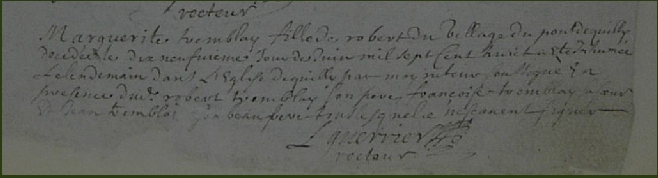 recteur
Marguerite tremblay fille de robert du village du pont de quilly
decedee le dix neufvieme jour de Juin mil sept cent huit a ete inhumee
le lendemain dans L'Eglise de quilly par moy recteur soussigne En
presence dud. robert tremblay son pere, françois tremblay
Et Jean tremblai son beau frere tous lesquels ne sçavent signer
L guerrier
recteur